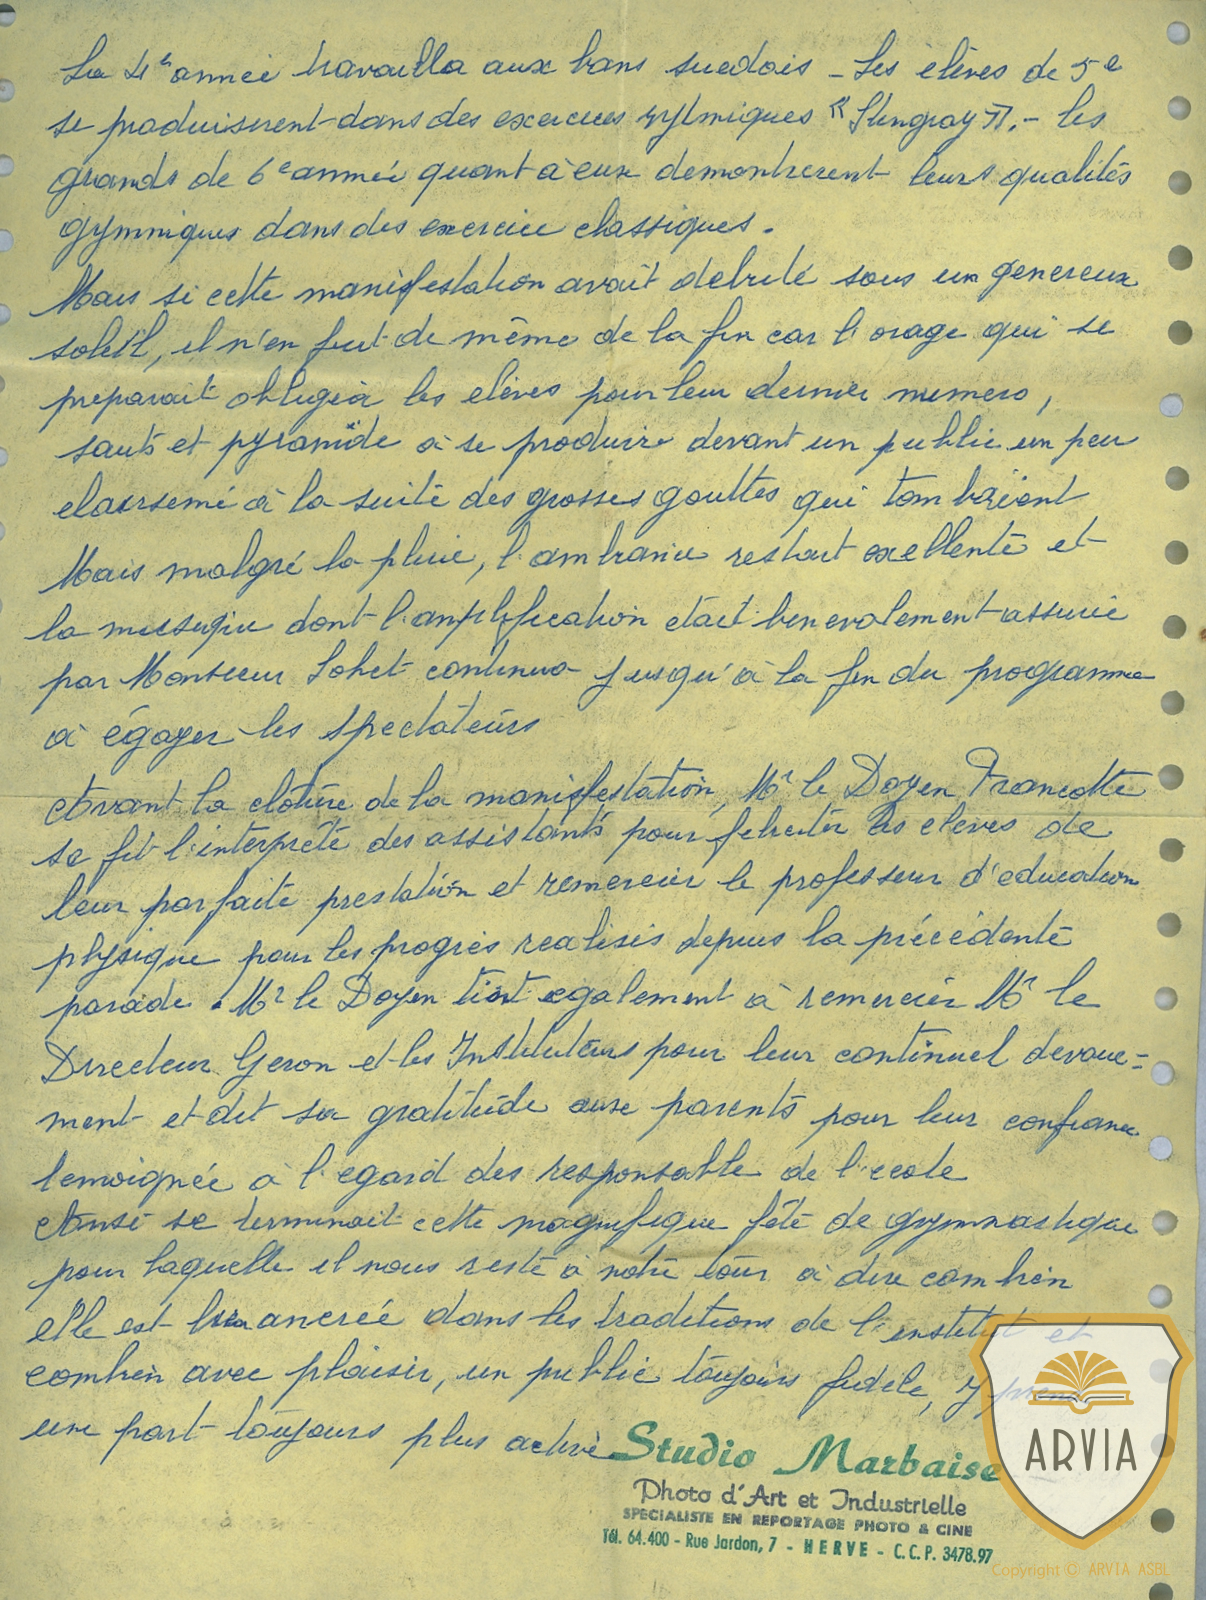 La 4e année travailla aux bans suedois - Les élèves de 5e
se produisirent dans des exercices rytmiques « Slengray ». - les
grands de 6e année quant à eux demontrerent leurs qualités
gymniques dans des exercice classiques.
Mais si cette manifestation avait debuté sous un genereux
soleil, il n'en fut de même de la fin car l'orage qui se
preparait obligea les elèves pour leur dernier numero,
sauts et pyramide à se produire devant un public un peu
clairsemé à la suite des grosses gouttes qui tombaient
Mais malgré la pluie, l'ambiance restait excellente et
la musique dont l'amplification etait benevolement assurée
par Monsieur Lohet continua jusqu'à la fin du programme
à égayer les spectateurs
Avant la clôture de la manifestation, Mr le Doyen Francotte
se fit l'interprète des assistants pour feliciter les eleves de
leur parfaite prestation et remercier le professeur d'education
physique pour les progrès realisés depuis la précédente
parade. Mr le Doyen tint egalement à remercier Mr le
Directeur Geron et les Instituteurs pour leur continuel devoue=
ment et dit sa gratitude aux parents pour leur confiance
temoignée à l'egard des responsable de l'ecole
Ainsi se terminait cette magnifique fête de gymnastique
pour laquelle il nous reste à notre tour à dire combien
elle est bien ancrée dans les traditions de l'institut et
combien avec plaisir, un public toujours fidele, y prend
une part toujours plus active
Studio Marbaise
Photo d'Art et Industrielle
SPECIALISTE EN REPORTAGE PHOTO & CINE
Tél. 64.400 - Rue Jardon, 7 - HERVE - C.C.P. 3478.97
ARVIA
Copyright © ARVIA ASBL